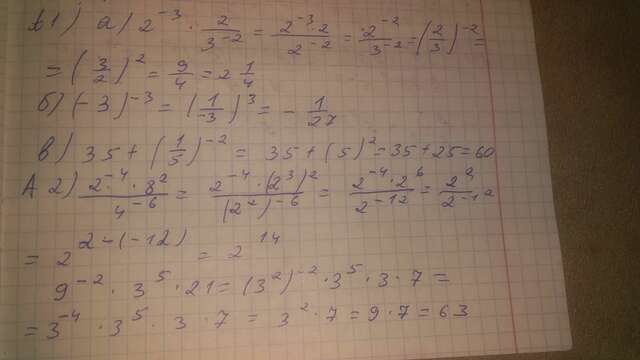 А 1) а) 2^-3 · 2/3^-2 = 2^-3 · 2/2^-2 = 2^-2/3^-2 = (2/3)^-2 =
= (3/2)^2 = 9/4 = 2 1/4
б) (-3)^-3 = (1/-3)^3 = - 1/27
в) 35 + (1/5)^-2 = 35 + (5)^2 = 35 + 25 = 60
А 2) 2^-4 · 8^2/4^-6 = 2^-4 · (2^3)^2/(2^2)^-6 = 2^-4 · 2^6/2^-12 = 2^2/2^-12
= 2^2-(-12) = 2^14
9^-2 · 3^5 · 21 = (3^2)^-2 · 3^5 · 3 · 7 =
= 3^-4 · 3^5 · 3 · 7 = 3^2 · 7 = 9 · 7 = 63